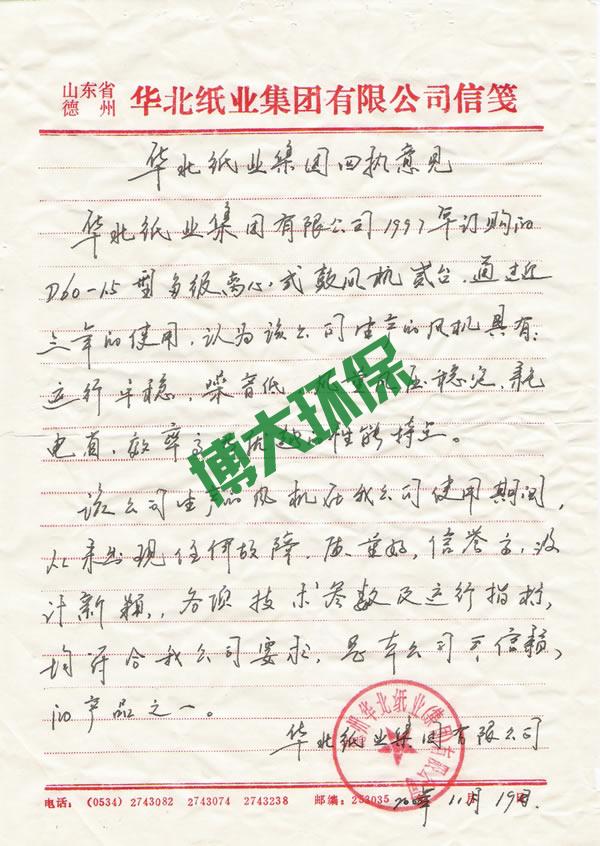 山东省
德州
华北纸业集团有限公司信笺
华北纸业集团回执意见
华北纸业集团有限公司1997年订购的
D60-1.5型多级离心式鼓风机贰台,通过近
三年的使用,认为该公司生产的风机具有:
运行平稳,噪音低,风压稳定、耗
电省,效率 优越 性能特点。
该公司生产的风机在我公司使用期间,
从未出现任何故障,质量好,信誉高,设
计新颖,各项技术参数及运行指标,
均符合我公司要求,是本公司可信赖
的产品之一。
华北纸业集团有限公司
德州华北纸业(集团)有限公司
博大环保
电话:(0534) 2743082 2743074 2743238 邮编:253035
11月19日.